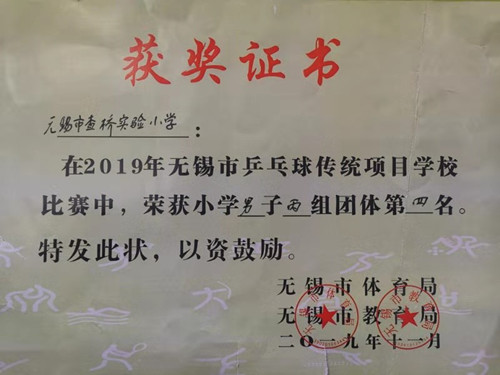 获奖证书
无锡市查桥实验小学：
在2019年无锡市乒乓球传统项目学校
比赛中，荣获小学男子丙组团体第四名。
特发此状，以资鼓励。
无锡市体育局
无锡市教育局
二〇一九年十一月
无锡市体育局
无锡市教育局